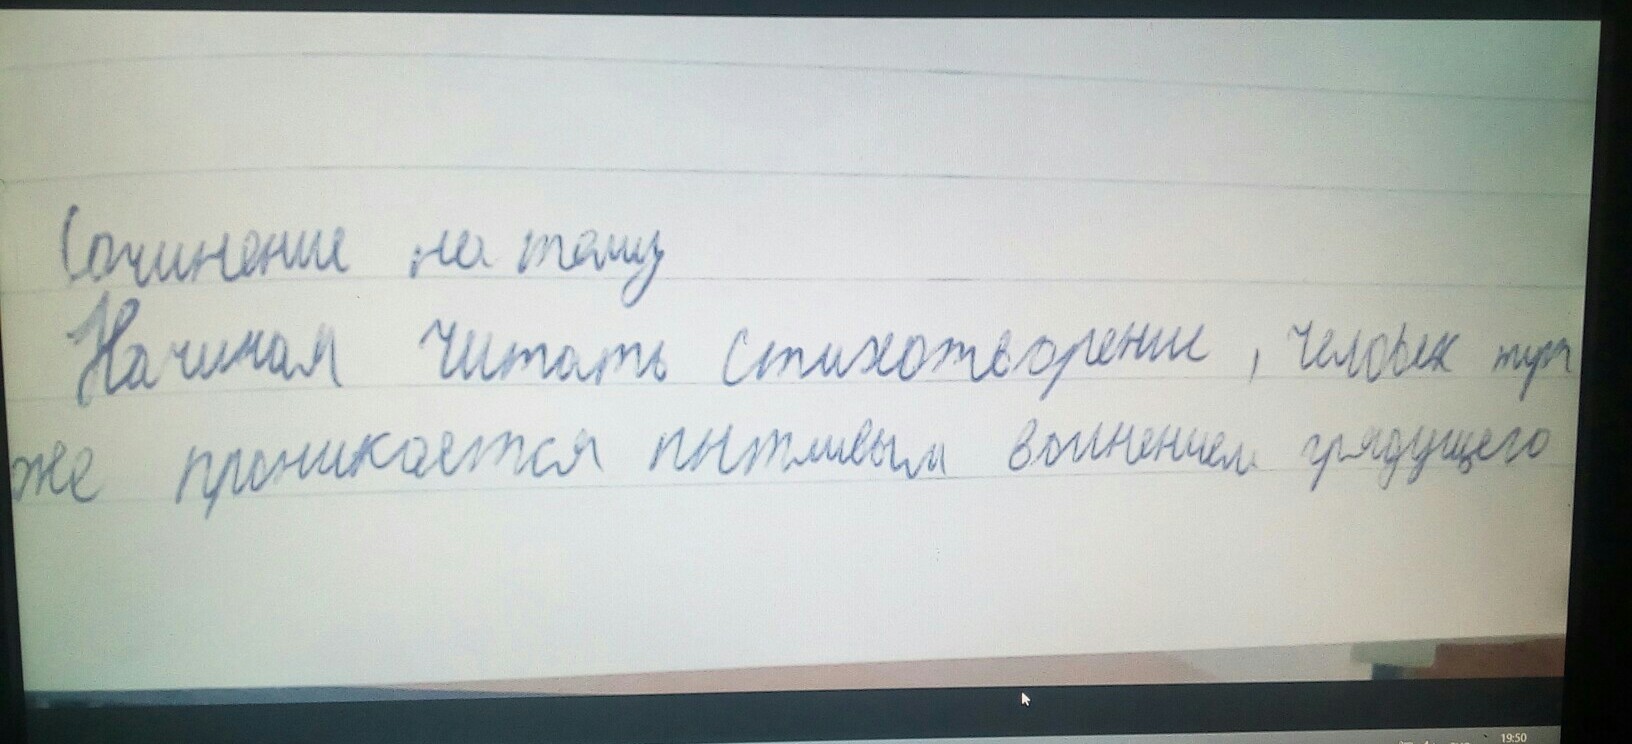 Сочинение на тему
Начиная читать стихотворение, человек тут
же проникается пытливым волнением грядущего
19:50